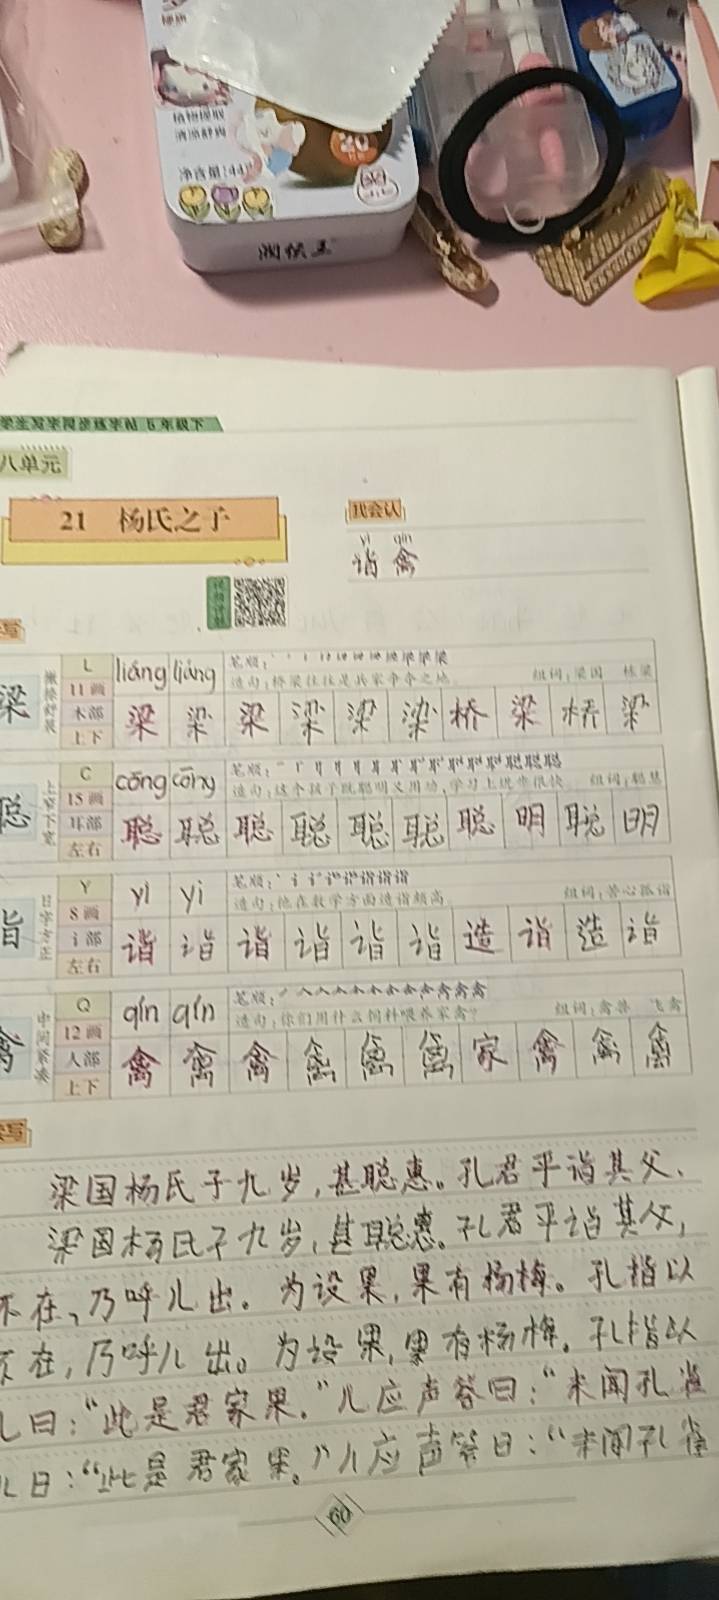 植物提取
清凉舒爽
20
净含量:44
润喉王
学生写字同步练字帖 5年级下
八单元
21 杨氏之子
我会认
yì qín
诣 禽
写
梁
撇捺舒展
L
11画
木部
上下
liáng liáng
笔顺:
造句:桥梁往往是兵家争夺之地。
组词:梁国 栋梁
梁 梁 梁 梁 梁 梁 桥 梁 桥 梁
聪
上窄下宽
C
15画
耳部
左右
cōng cōng
笔顺:
造句:这个孩子既聪明又用功,学习上进步很快。
组词:聪慧
聪 聪 聪 聪 聪 聪 聪 明 聪 明
诣
日字方正
Y
8画
讠部
左右
yì yì
笔顺:
造句:他在数学方面造诣颇高。
组词:苦心孤诣
诣 诣 诣 诣 诣 诣 造 诣 造 诣
禽
中间紧凑
Q
12画
人部
上下
qín qín
笔顺:
造句:你们用什么饲料喂养家禽?
组词:禽兽 飞禽
禽 禽 禽 禽 禽 禽 家 禽 禽 禽
写
梁国杨氏子九岁,甚聪惠。孔君平诣其父,
梁国杨氏子九岁,甚聪惠。孔君平诣其父,
不在,乃呼儿出。为设果,果有杨梅。孔指以
不在,乃呼儿出。为设果,果有杨梅。孔指以
儿曰:“此是君家果。”儿应声答曰:“未闻孔雀
儿曰:“此是君家果。”儿应声答曰:“未闻孔雀
60